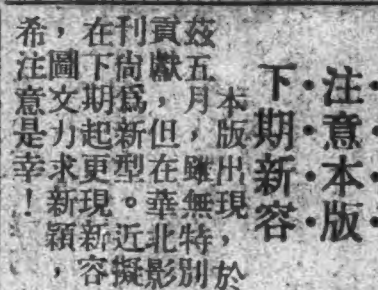 注意本版
下期新容
本版出現，於
茲五月，雖無特別
貢獻，但在華北影
刊尚爲新型。近擬
在下期起更現新容
，圖文力求新穎，
希注意是幸！